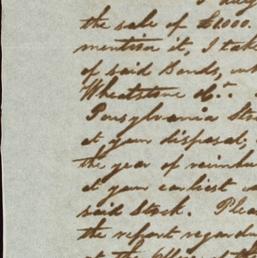 the sale of £1000.
mention it, I take
of said Bonds, 
Wheatstone &c.
Pensylvania Sto
at your disposal,
the year of reimbu
at your earliest
said Stock. Plea
the report regardi
at the Office of th